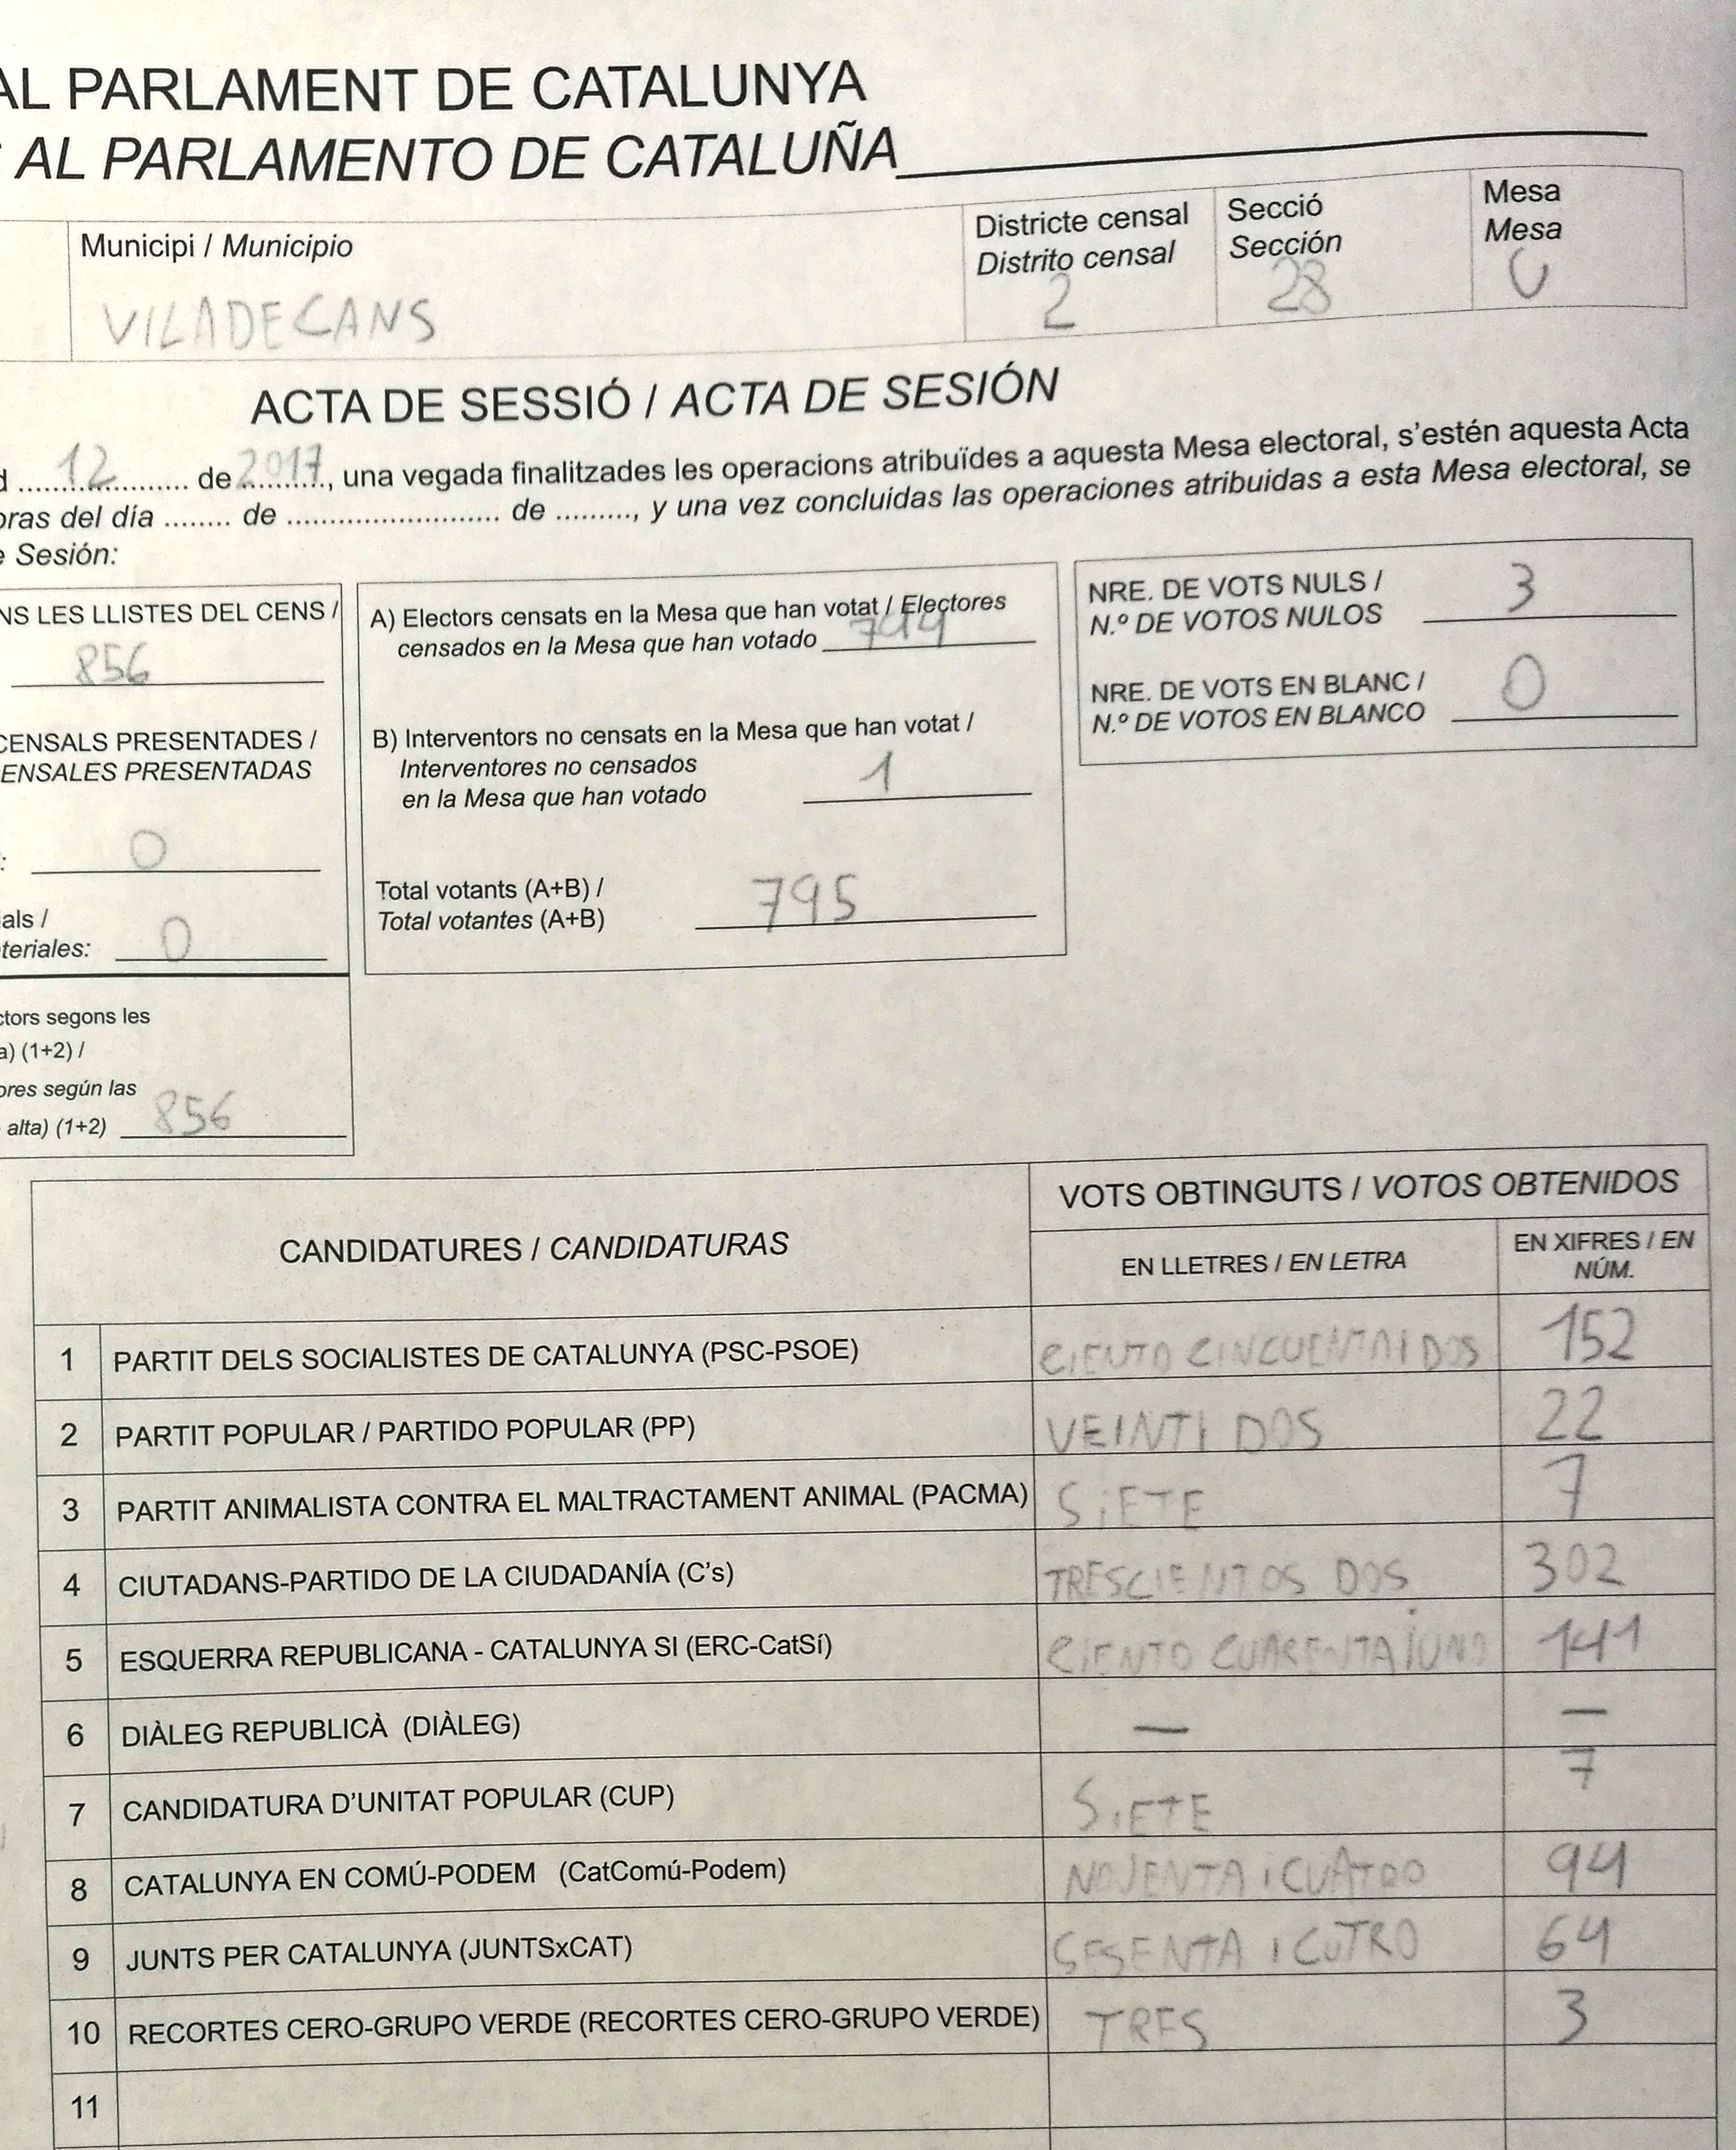 AL PARLAMENT DE CATALUNYA
AL PARLAMENTO DE CATALUÑA
Municipi / Municipio
VILADECANS
Districte censal
Distrito censal
2
Secció
Sección
28
Mesa
Mesa
U
ACTA DE SESSIÓ / ACTA DE SESIÓN
12 de 2017, una vegada finalitzades les operacions atribuïdes a aquesta Mesa electoral, s'estén aquesta Acta
oras del día ........ de .......................... de ........., y una vez concluidas las operaciones atribuidas a esta Mesa electoral, se
e Sesión:
NS LES LLISTES DEL CENS /
856
CENSALS PRESENTADES /
ENSALES PRESENTADAS
: 0
ials /
teriales: 0
ctors segons les
a) (1+2) /
ores según las
alta) (1+2) 856
A) Electors censats en la Mesa que han votat / Electores
censados en la Mesa que han votado 794
B) Interventors no censats en la Mesa que han votat /
Interventores no censados
en la Mesa que han votado 1
Total votants (A+B) /
Total votantes (A+B) 795
NRE. DE VOTS NULS /
N.º DE VOTOS NULOS 3
NRE. DE VOTS EN BLANC /
N.º DE VOTOS EN BLANCO 0
CANDIDATURES / CANDIDATURAS
VOTS OBTINGUTS / VOTOS OBTENIDOS
EN LLETRES / EN LETRA
EN XIFRES / EN
NÚM.
1 PARTIT DELS SOCIALISTES DE CATALUNYA (PSC-PSOE) CIENTO CINCUENTAI DOS 152
2 PARTIT POPULAR / PARTIDO POPULAR (PP) VEINTI DOS 22
3 PARTIT ANIMALISTA CONTRA EL MALTRACTAMENT ANIMAL (PACMA) SiETE 7
4 CIUTADANS-PARTIDO DE LA CIUDADANÍA (C's) TRESCIENTOS DOS 302
5 ESQUERRA REPUBLICANA - CATALUNYA SI (ERC-CatSí) CIENTO CUARENTA iUNO 141
6 DIÀLEG REPUBLICÀ (DIÀLEG) — —
7 CANDIDATURA D'UNITAT POPULAR (CUP) SiETE 7
8 CATALUNYA EN COMÚ-PODEM (CatComú-Podem) NOVENTA i CUATRO 94
9 JUNTS PER CATALUNYA (JUNTSxCAT) SESENTA i CUTRO 64
10 RECORTES CERO-GRUPO VERDE (RECORTES CERO-GRUPO VERDE) TRES 3
11